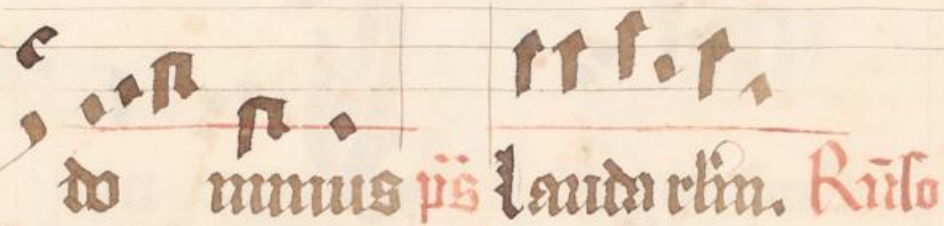 do minus p̄s Lauda rlm̄. Rn̄ſo